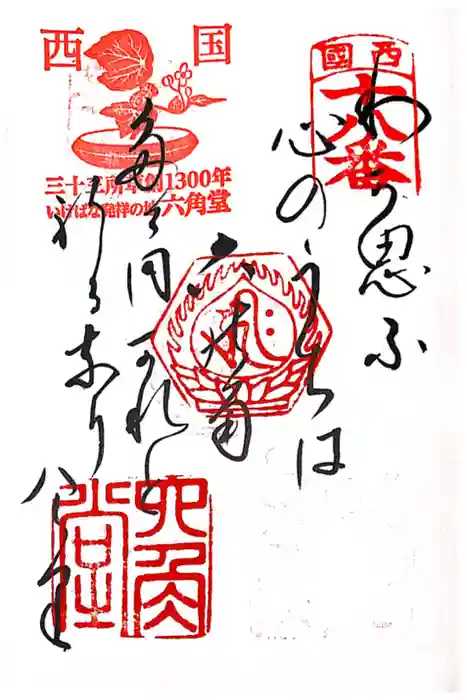 西國
十八番
わか思ふ
心のうちは
六の角
たゝ円かれと
祈るなり
西国
三十三所草創1300年
いけばな発祥の地 六角堂
六角堂